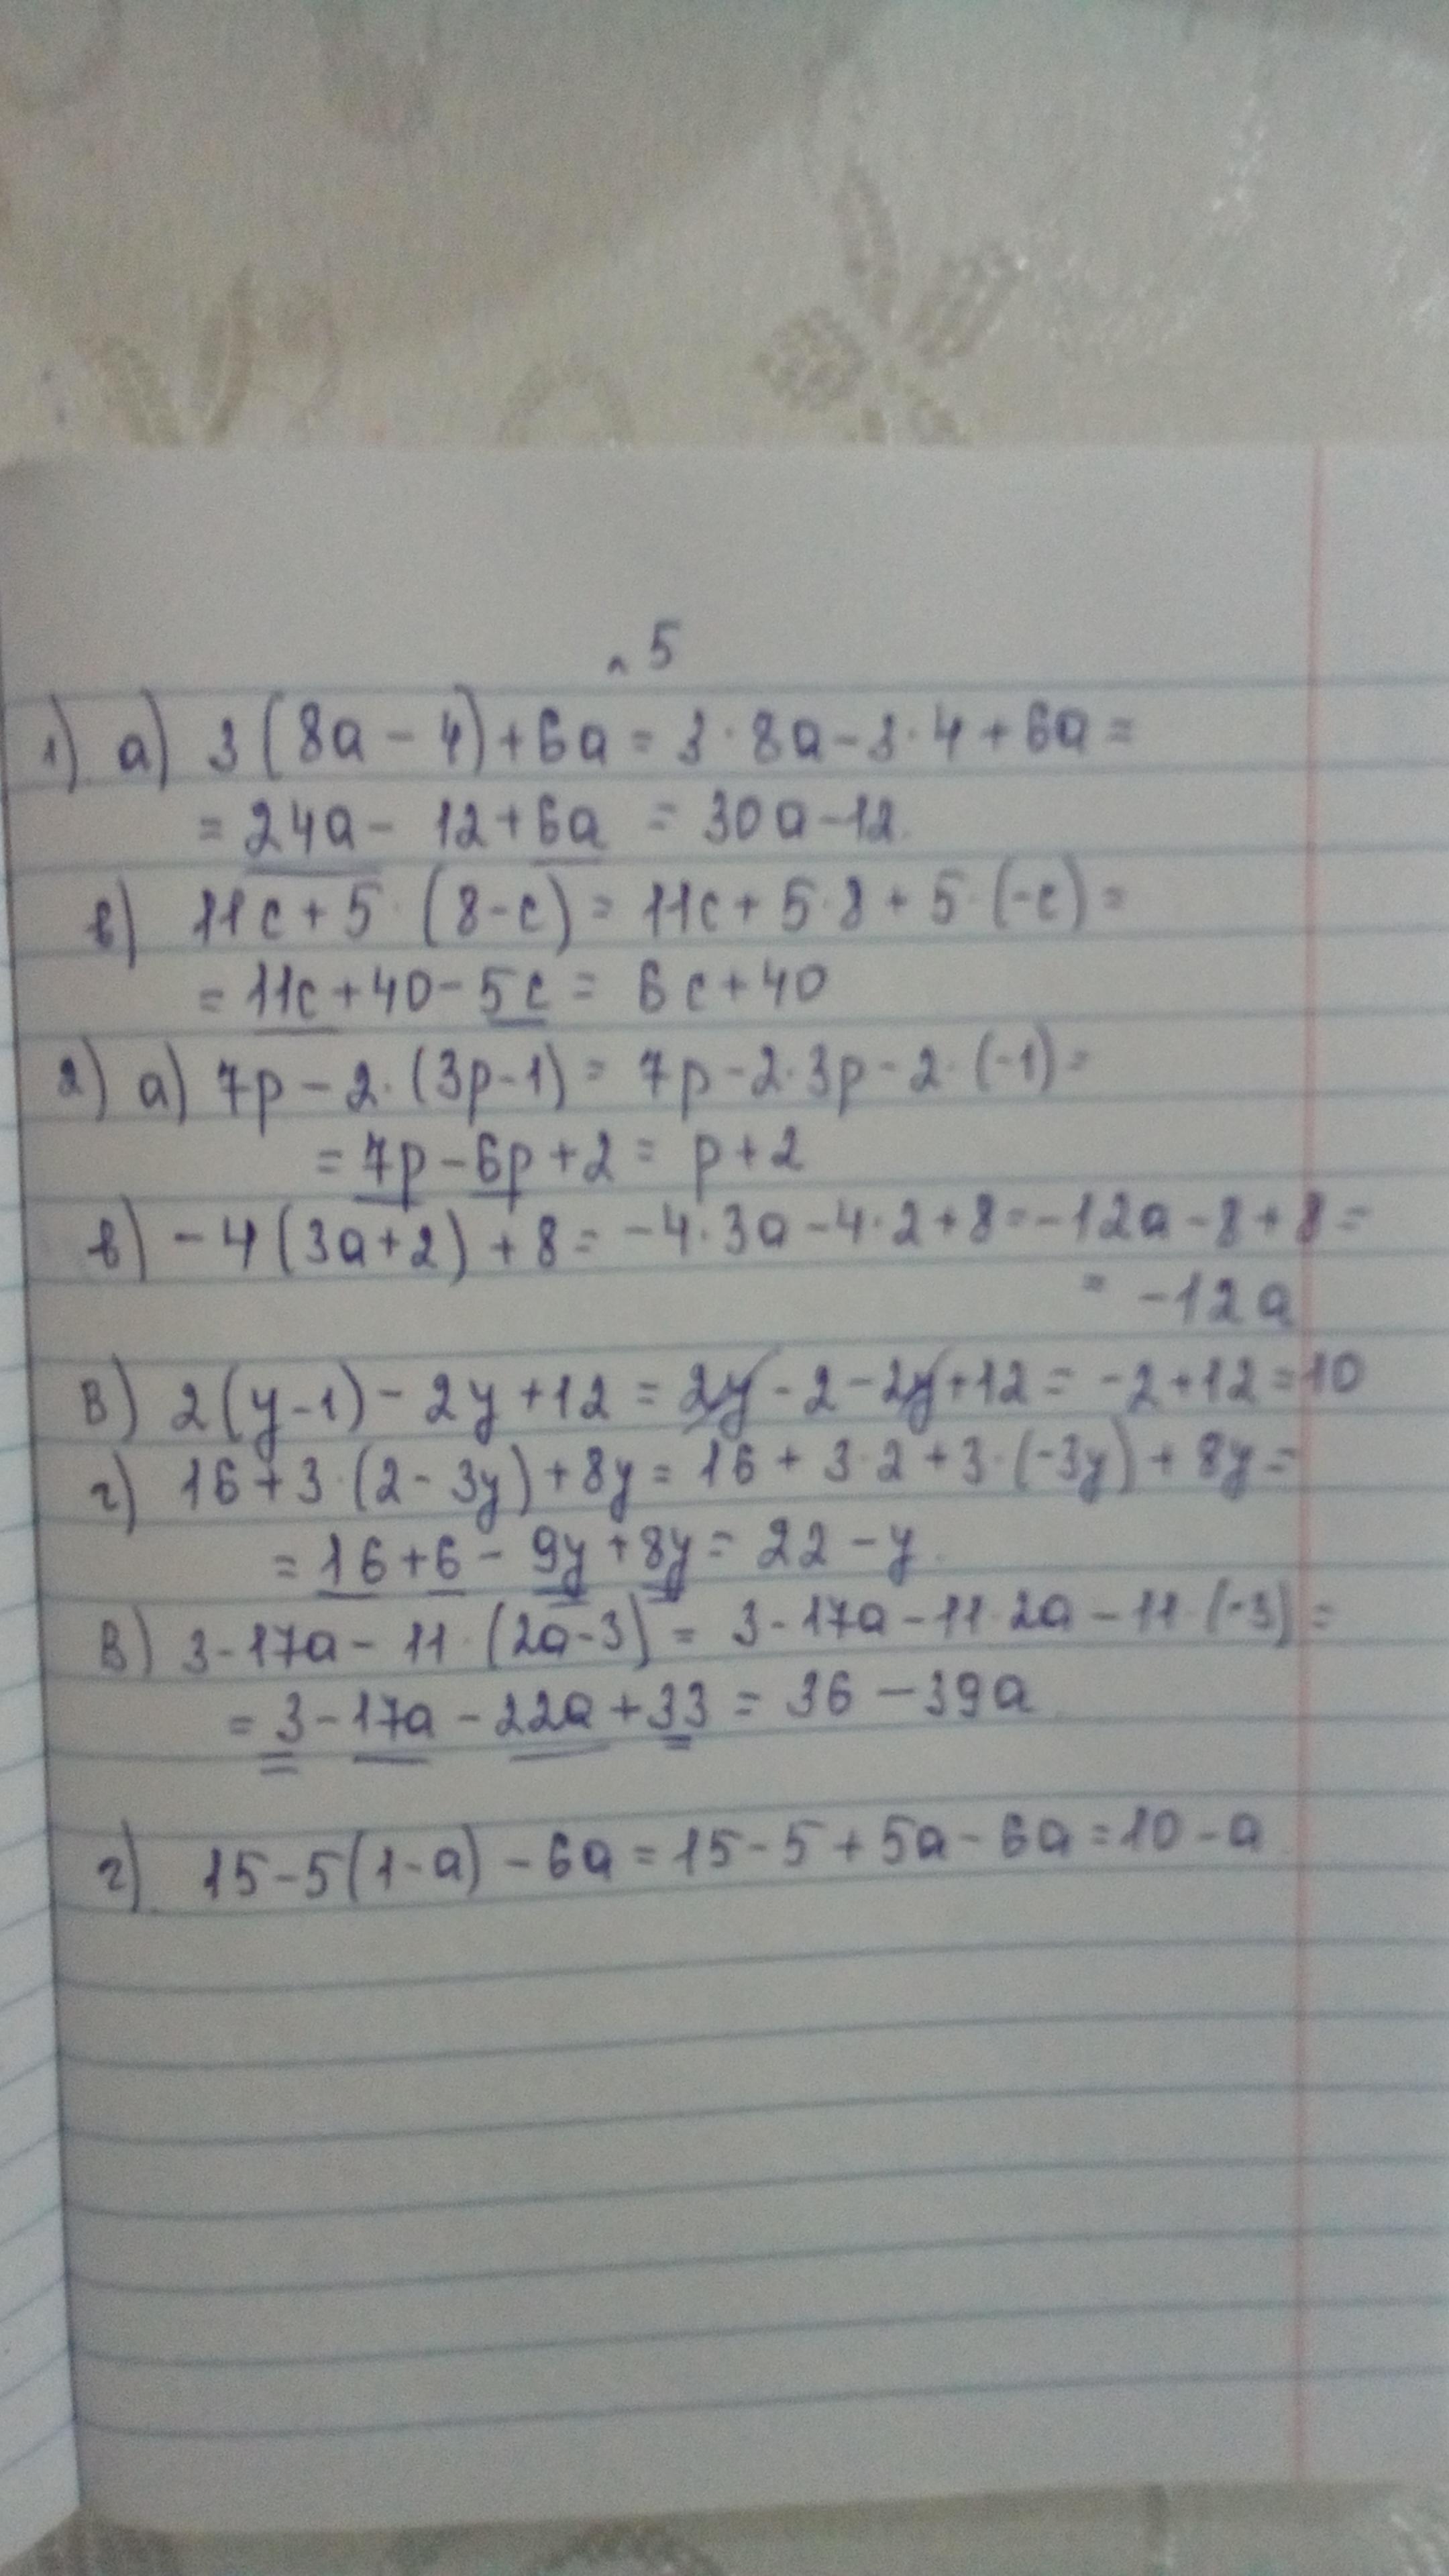 n 5
1) а) 3(8a - 4)+6a = 3·8a-3·4+6a=
= 24a- 12+6a = 30a-12.
б) 11c+5·(8-c)= 11c+5·8+5·(-c)=
= 11c+40-5c= 6c+40
2) а) 7p-2·(3p-1)= 7p-2·3p-2·(-1)=
= 7p-6p+2= p+2
б) -4(3a+2)+8= -4·3a-4·2+8=-12a-8+8=
= -12a
в) 2(y-1)-2y+12=2y-2-2y+12= -2+12=10
г) 16+3·(2-3y)+8y=16+3·2+3·(-3y)+8y=
= 16+6-9y+8y= 22-y.
в) 3-17a-11·(2a-3)= 3-17a-11·2a-11·(-3)=
= 3-17a-22a+33= 36-39a
г) 15-5(1-a)-6a=15-5+5a-6a=10-a